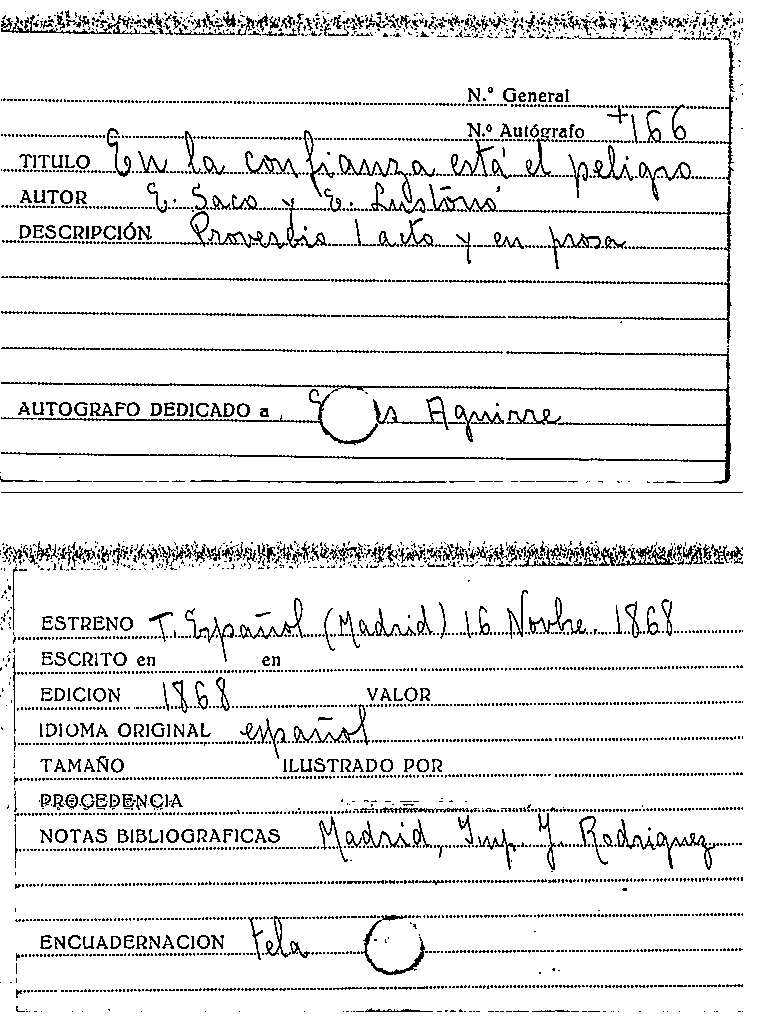 N.º General
N.º Autógrafo +166
TITULO En la confianza está el peligro
AUTOR E. Saco y E. Lustonó
DESCRIPCIÓN Proverbio 1 acto y en prosa
AUTOGRAFO DEDICADO a Aguirre
ESTRENO T. Español (Madrid) 16 Novbre. 1868
ESCRITO en en
EDICION 1868 VALOR
IDIOMA ORIGINAL español
TAMAÑO ILUSTRADO POR
PROCEDENCIA
NOTAS BIBLIOGRAFICAS Madrid, Imp. J. Rodriguez
ENCUADERNACION tela